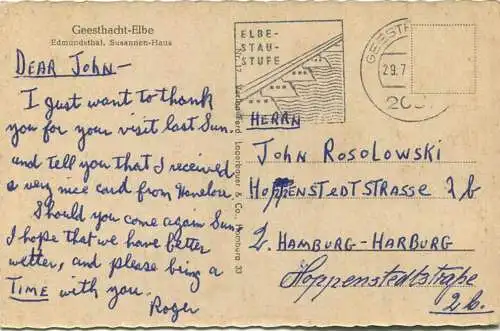 Geesthacht-Elbe
Edmundsthal, Susannen-Haus
DEAR JOHN—
I just want to thank
you for your visit last Sun.
and tell you that I received
a very nice card from Hanelore.
Should you come again Sun.,
I hope that we have better
wetter, and please being a
TIME with you.
Roger
ELBE-
STAU-
STUFE
29.7
HERRN
JOHN ROSOLOWSKI
HOPPENSTEDTSTRASSE 2b
2. HAMBURG-HARBURG
Hoppenstedtstraße
2b.